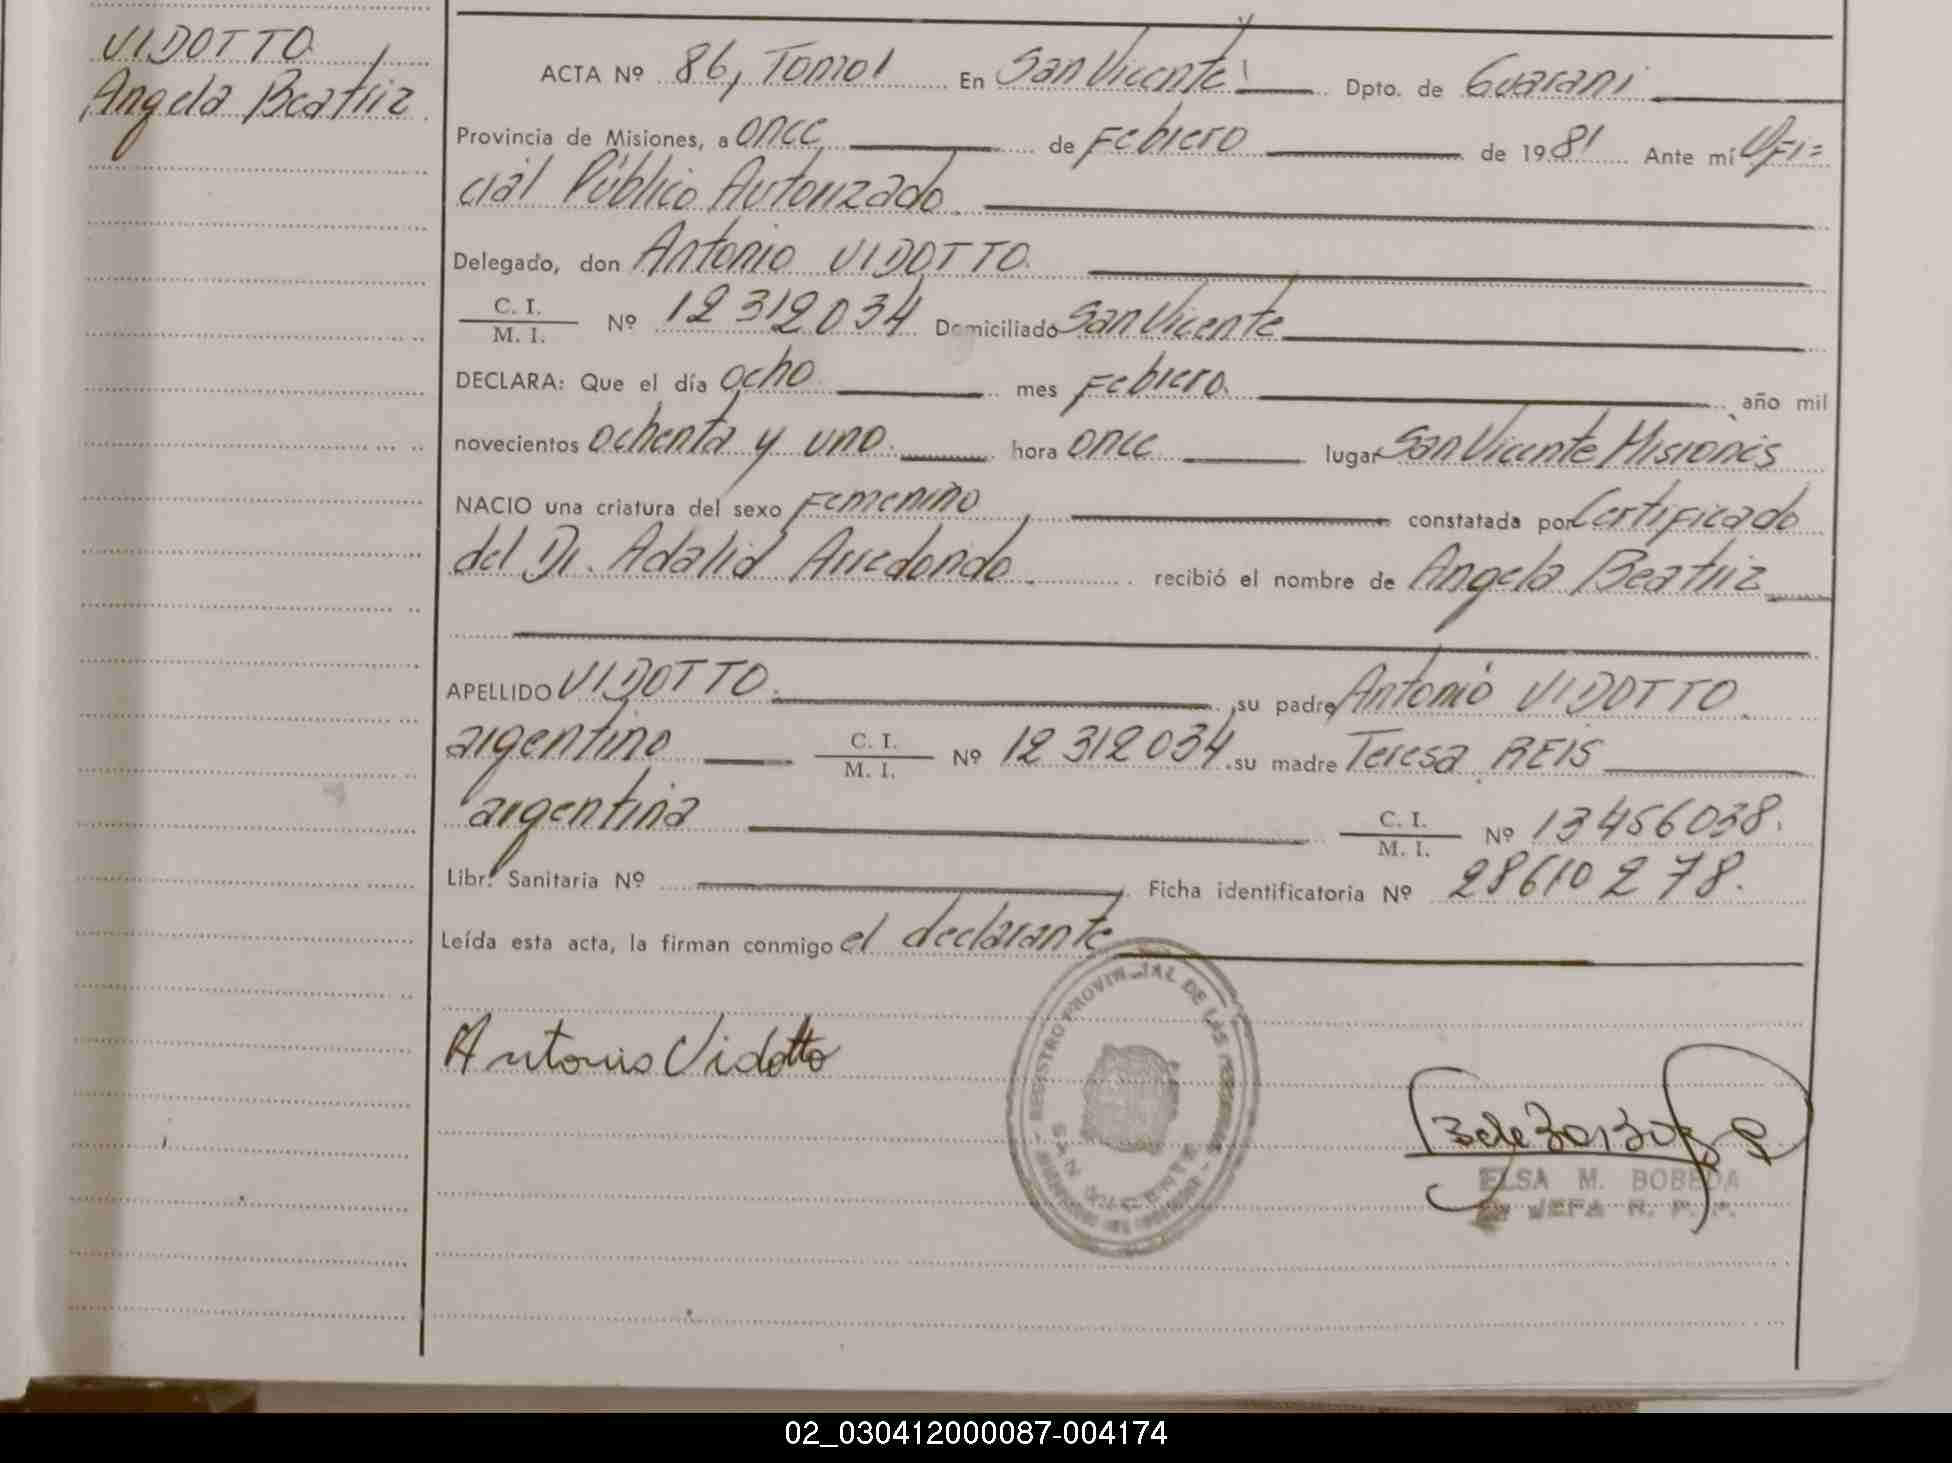 VIDOTTO
Angela Beatriz
ACTA Nº 86, Tomo I En San Vicente Dpto. de Guarani
Provincia de Misiones, a once de Febrero de 1981 Ante mí Ofi=
cial Público Autorizado.
Delegado, don Antonio VIDOTTO.
C. I.
M. I. Nº 12312034 Domiciliado San Vicente
DECLARA: Que el día ocho mes Febrero. año mil
novecientos ochenta y uno. hora once lugar San Vicente Misiones
NACIO una criatura del sexo Femenino constatada por Certificado
del Dr. Adalid Arredondo. recibió el nombre de Angela Beatriz
APELLIDO VIDOTTO. su padre Antonio VIDOTTO.
argentino C. I.
M. I. Nº 12312034 su madre Teresa REIS
argentina C. I.
M. I. Nº 13456038.
Libr. Sanitaria Nº Ficha identificatoria Nº 28610278.
Leída esta acta, la firman conmigo el declarante
Antonio Vidotto
REGISTRO PROVINCIAL DE LAS PERSONAS
SAN VICENTE
ELSA M. BOBEDA
JEFA R. P. P.
02_030412000087-004174